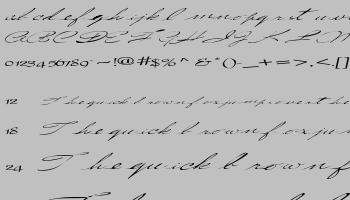 ab cd ef gh ijkl mnopqrst uvw
ABCDEFGHIJKLM
0123456789 ~!@#$%^&*()-_+=>,<.[]
12 The quick brown fox jumps over the
18 The quick brown fox jum
24 The quick brown f